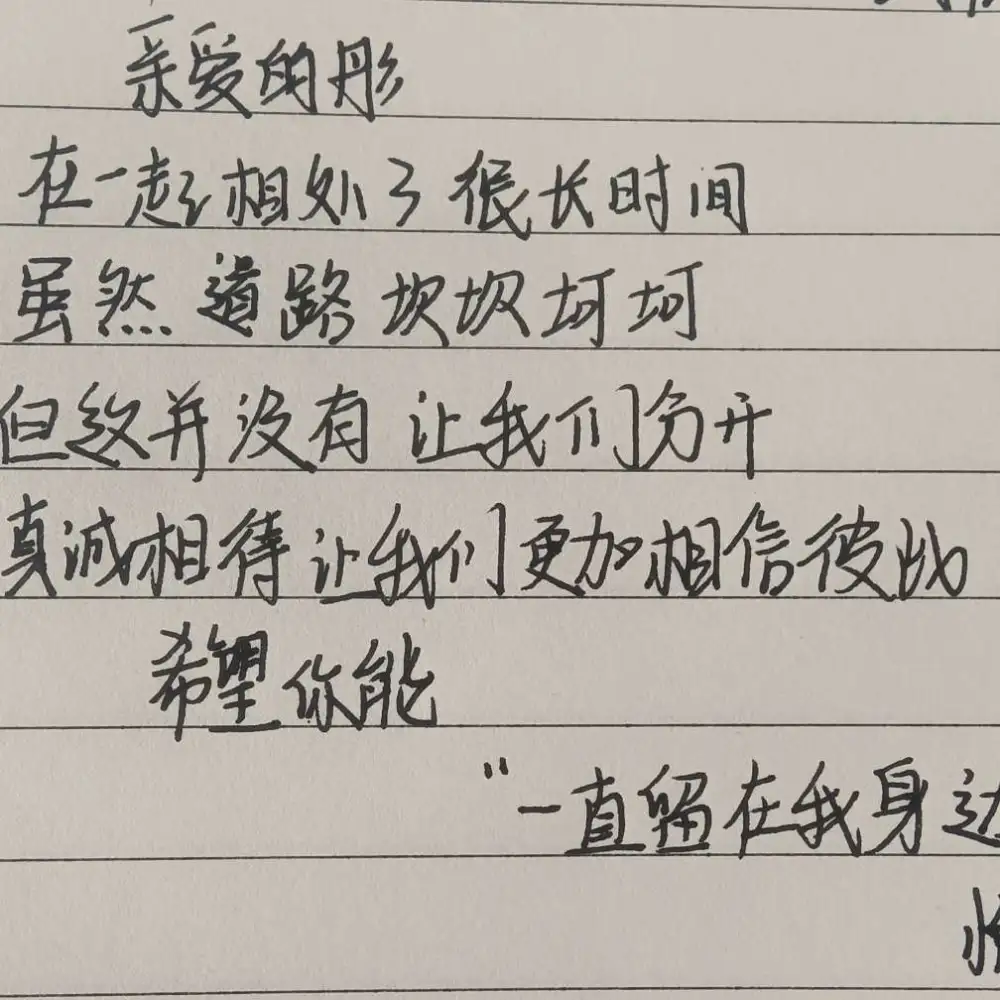 亲爱的彤
在一起相处了很长时间
虽然道路坎坎坷坷
但这并没有让我们分开
真诚相待让我们更加相信彼此
希望你能
"一直留在我身边